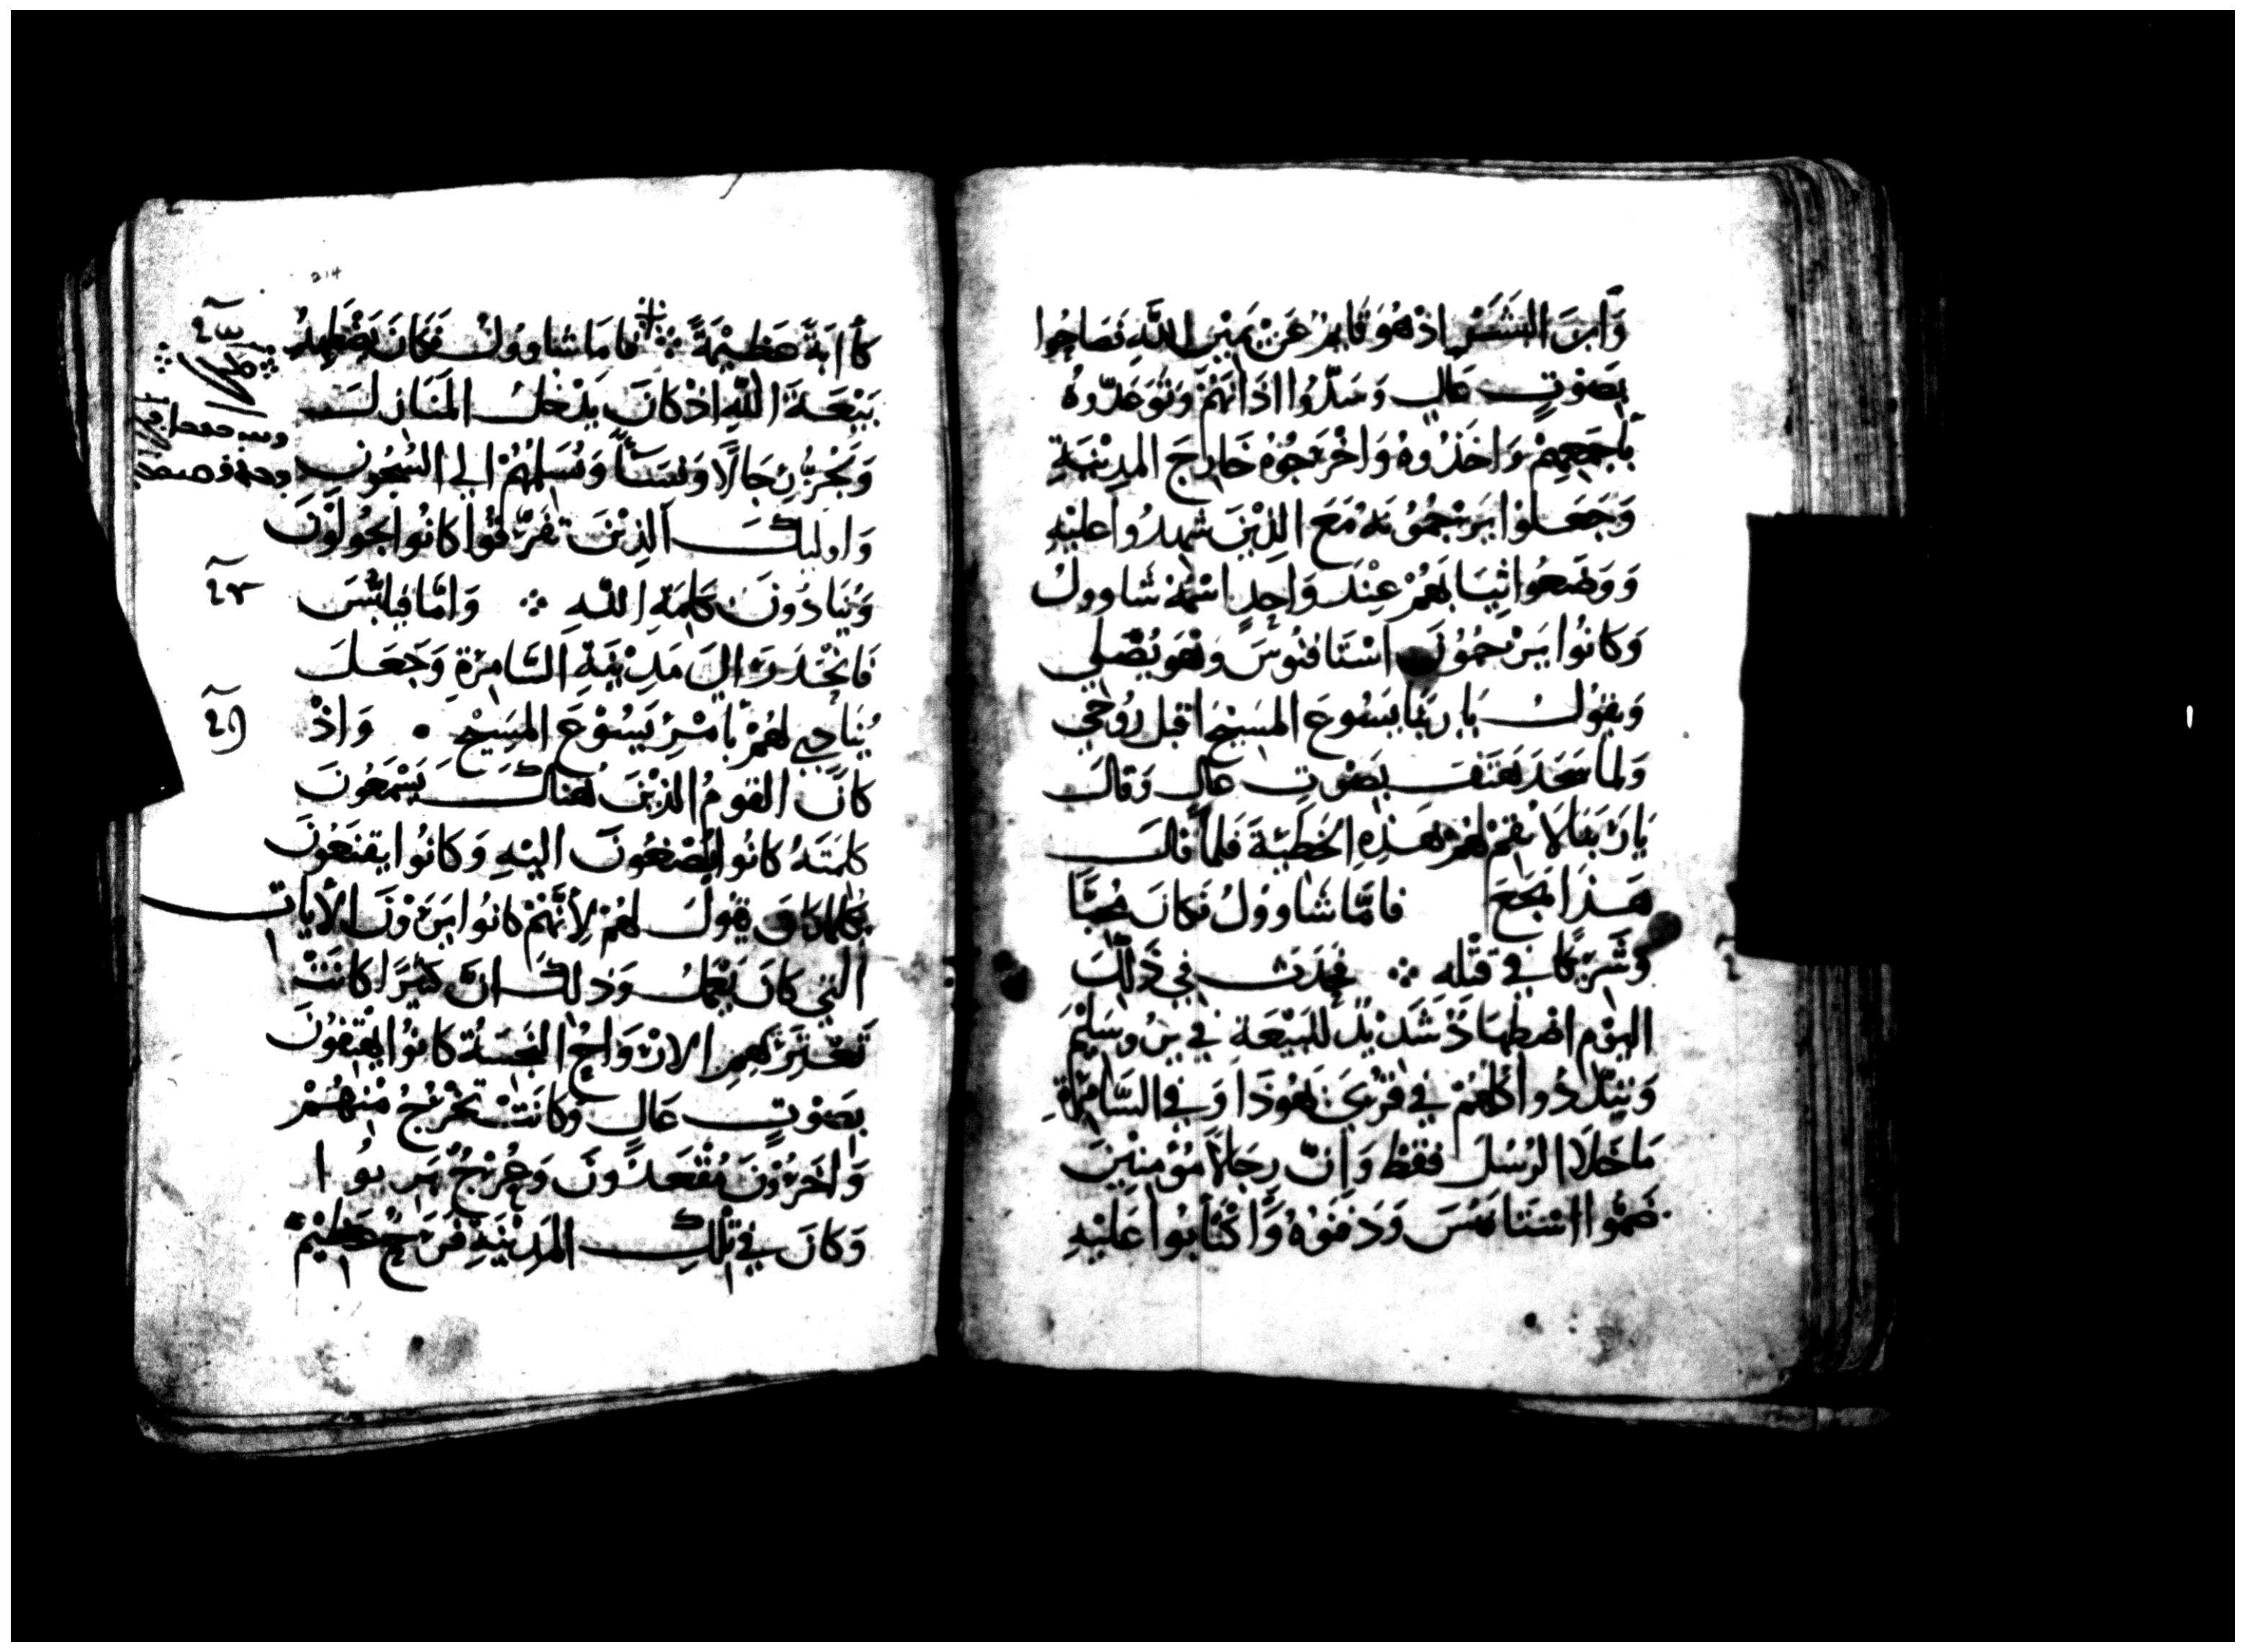 وَابنَ البَشَرِ اذ هُوَ قَايمٌ عَنْ يَمِيْنِ اللّهِ فَصَاحُوا
بِصَوْتٍ عَالٍ وَسَدُّوا اذَانَهُمْ وَتَوَعَّدُوهُ
بِأجمَعِهِمْ وَاخَذُوهُ وَاخْرَجُوْهُ خَارِجَ المدِيْنَةِ
وَجَعَلوْا يَرْجُمُوْنَهُ مَعَ الذِيْنَ شَهِدُوا عَليْهِ
وَوَضَعُوا ثِيَابَهُمْ عِنْدَ وَاحِدٍ اسْمُهُ شَاوولُ
وَكَانُوا يَرْجُمُوْنَ اسْتَافنُوسَ وَهُوَ يُصَلِي
وَيقوُلُ يَا رَبَنَا يَسُوعَ المسَيْحَ اقبل رُوْحِي
وَلما سَجَدَ هَتَفَ بِصَوْتٍ عَالٍ وَقَالَ
يَا رَبَنَا لَا تقمْ لهُمْ هَذِهِ الخَطِيْئَةَ فَلما قَالَ
هَذَا هَجَعَ فَامَّا شَاووْلُ فَكَانَ مُحِبًّا
وَشَرِيْكًا فِي قَتْلِه ܀ فحَدَثَ فِي ذَلِكَ
اليَوْمِ اضْطِهَادٌ شَدِيْدٌ للبِيْعَةِ فِي يرُوسَلِيْمَ
وَتبَدَّدُوا كلهُمْ فِي قرَى يَهُوْذَا وَفِي السَّامِرَةِ
مَا خَلَا الرُسُلَ فقطْ وَانّ رِجَالًا مُؤْمِنِيْنَ
ضَمُّوا اسْتَافنسَ وَدَفَنوْهُ وَاكْتَأبُوا عَليْهِ
214
كَأابَةً عَظِيْمَةً ܀ فَامَا شاووُلُ فَكَانَ يَضْطَهِدُ
بَيْعَةَ اللّهِ اذ كَانَ يَدْخلُ المَنَازلَ
وَيَجُرُّ رِجَالًا وَنِسَأً وَيُسَلِمُهُمْ الِى السُجُونِ
وَاوليكَ الذِيْنَ تفَرّقُوْا كَانُوا يَجُولُوْنَ
وَيُنَادُونَ بكلِمَةِ اللّهِ ܀ وَامَّا فِيلبّسَ
فَانْحَدَرَ الِى مَدِيْنَةِ السَّامِرَةِ وَجَعَلَ
يُنَادِي لهُمْ بأمْرِ يَسُوْعَ المَسِيْحِ وَاذْ
كَانَ القومُ الذِيْنَ هُنَاكَ يَسْمَعُونَ
كلمَتَهُ كَانُوا يُصْغُونَ اليْهِ وَكَانُوا يقنَعُونَ
يَقُولُ لهُمْ لِأنّهُمْ كَانُوا يَرَوْنَ الأيات
التِي كَانَ يَعْمَلُ وَذَلِكَ انّ كَثِيْرًا كَانَتْ
تَعْتَرِيْهِمِ الارْوَاحُ النَجِسَةُ كَانُوا يَهْتِفُوْنَ
بِصَوْتٍ عَالٍ وَكَانَتْ تَخْرُجُ مِنْهُمْ
وَاخَرُوْنَ مُقْعَدُوْنَ وَعُرْجٌ بَرِيُوا
وَكَانَ فِي تِلكَ المَدِيْنَةِ فَرَحٌ عَظِيْمٌ